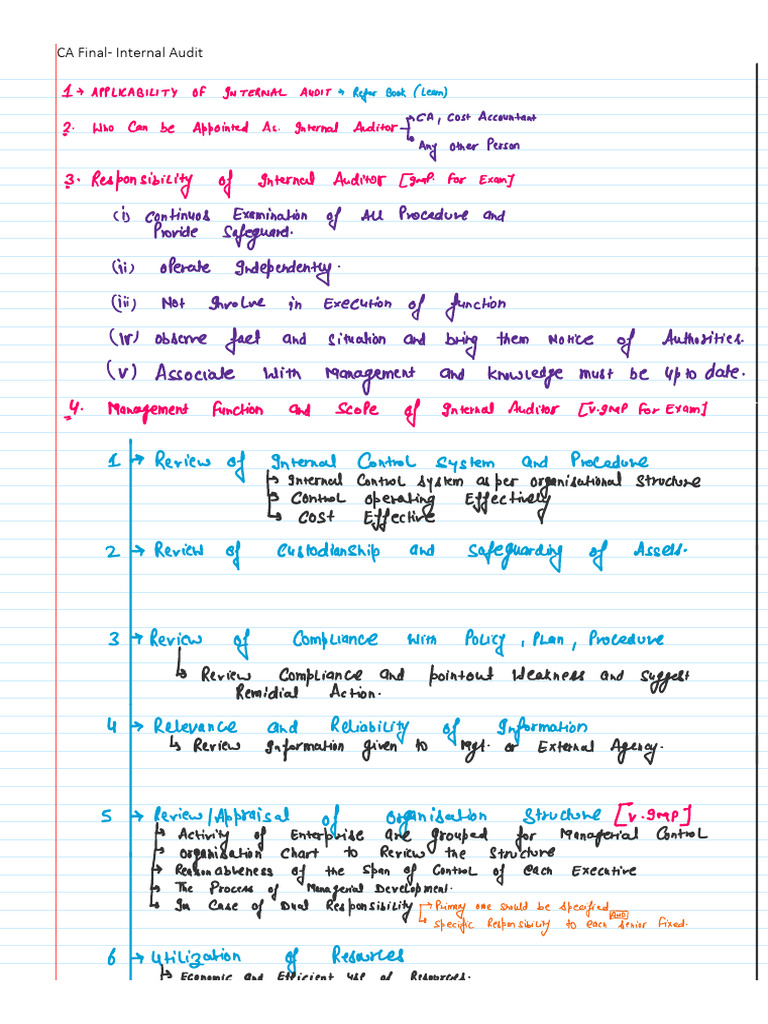 CA Final- Internal Audit
1→ APPLICABILITY OF INTERNAL AUDIT → Refer Book (Learn)
2. Who Can be Appointed As. Internal Auditor → CA, Cost Accountant
→ Any other Person
3. Responsibility of Internal Auditor [Imp. For Exam]
(i) Continuos Examination of All Procedure and
Provide Safeguard.
(ii) operate Independently.
(iii) Not Involve in Execution of function
(iv) observe fact and Situation and bring them Notice of Authorities.
(v) Associate with Management and knowledge must be up to date.
4. Management Function and Scope of Internal Auditor [v.Imp For Exam]
1 → Review of Internal Control System and Procedure
→ Internal Control System as per organisational Structure
→ Control operating Effectively
→ Cost Effective
2 → Review of Custodianship and Safeguarding of Assets.
3 → Review of Compliance with Policy, Plan, Procedure
→ Review Compliance and pointout Weakness and Suggest
Remidial Action.
4 → Relevance and Reliability of Information
→ Review Information given to Mgt. or External Agency.
5 → Review/Appraisal of organisation Structure [v.Imp]
→ Activity of Enterprise are grouped for Managerial Control
→ organisation Chart to Review the Structure
→ Reasonableness of the Span of Control of each Executive
→ The Process of Managerial Development.
→ In Case of Dual Responsibility → Primary one should be specified
AND
→ specific Responsibility to each senior Fixed.
6 → Utilization of Resources
→ Economic and Efficient use of Resources.